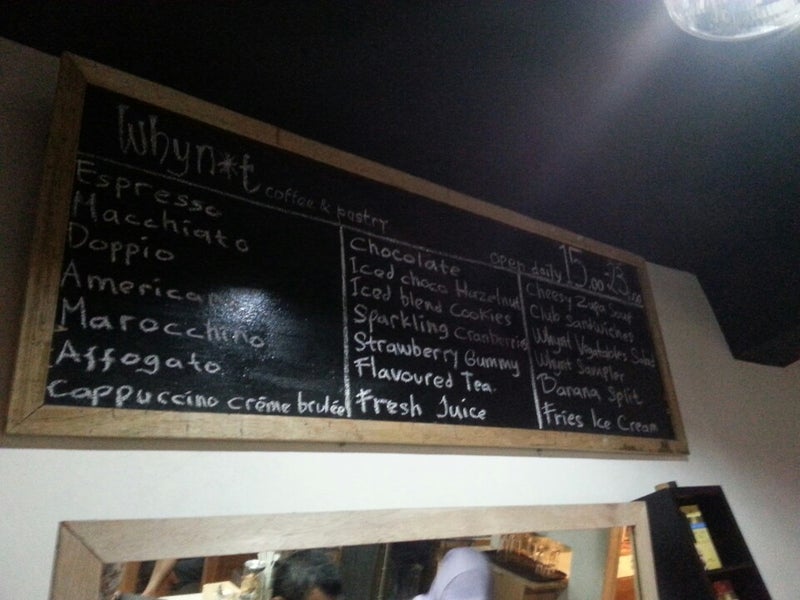 Whyn*t coffee & pastry
open daily 15.00-23.00
Espresso
Macchiato
Doppio
American
Marocchino
Affogato
Cappuccino crème brulée
Chocolate
Iced choco Hazelnut
Iced blend Cookies
Sparkling Cranberries
Strawberry Gummy
Flavoured Tea
Fresh Juice
Cheesy Zupa Soup
Club Sandwiches
Whynt Vegetables Salad
Whynt Sampler
Banana Split
Fries Ice Cream